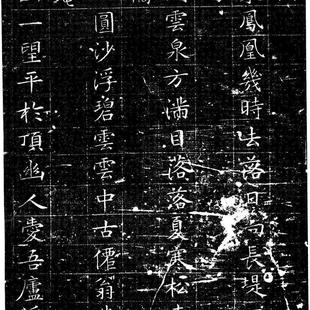 鳳凰幾時去落日長堤
雲泉方滿目落落夏寒松
圓沙浮碧雲雲中古僊翁
一望平於頂幽人愛吾廬